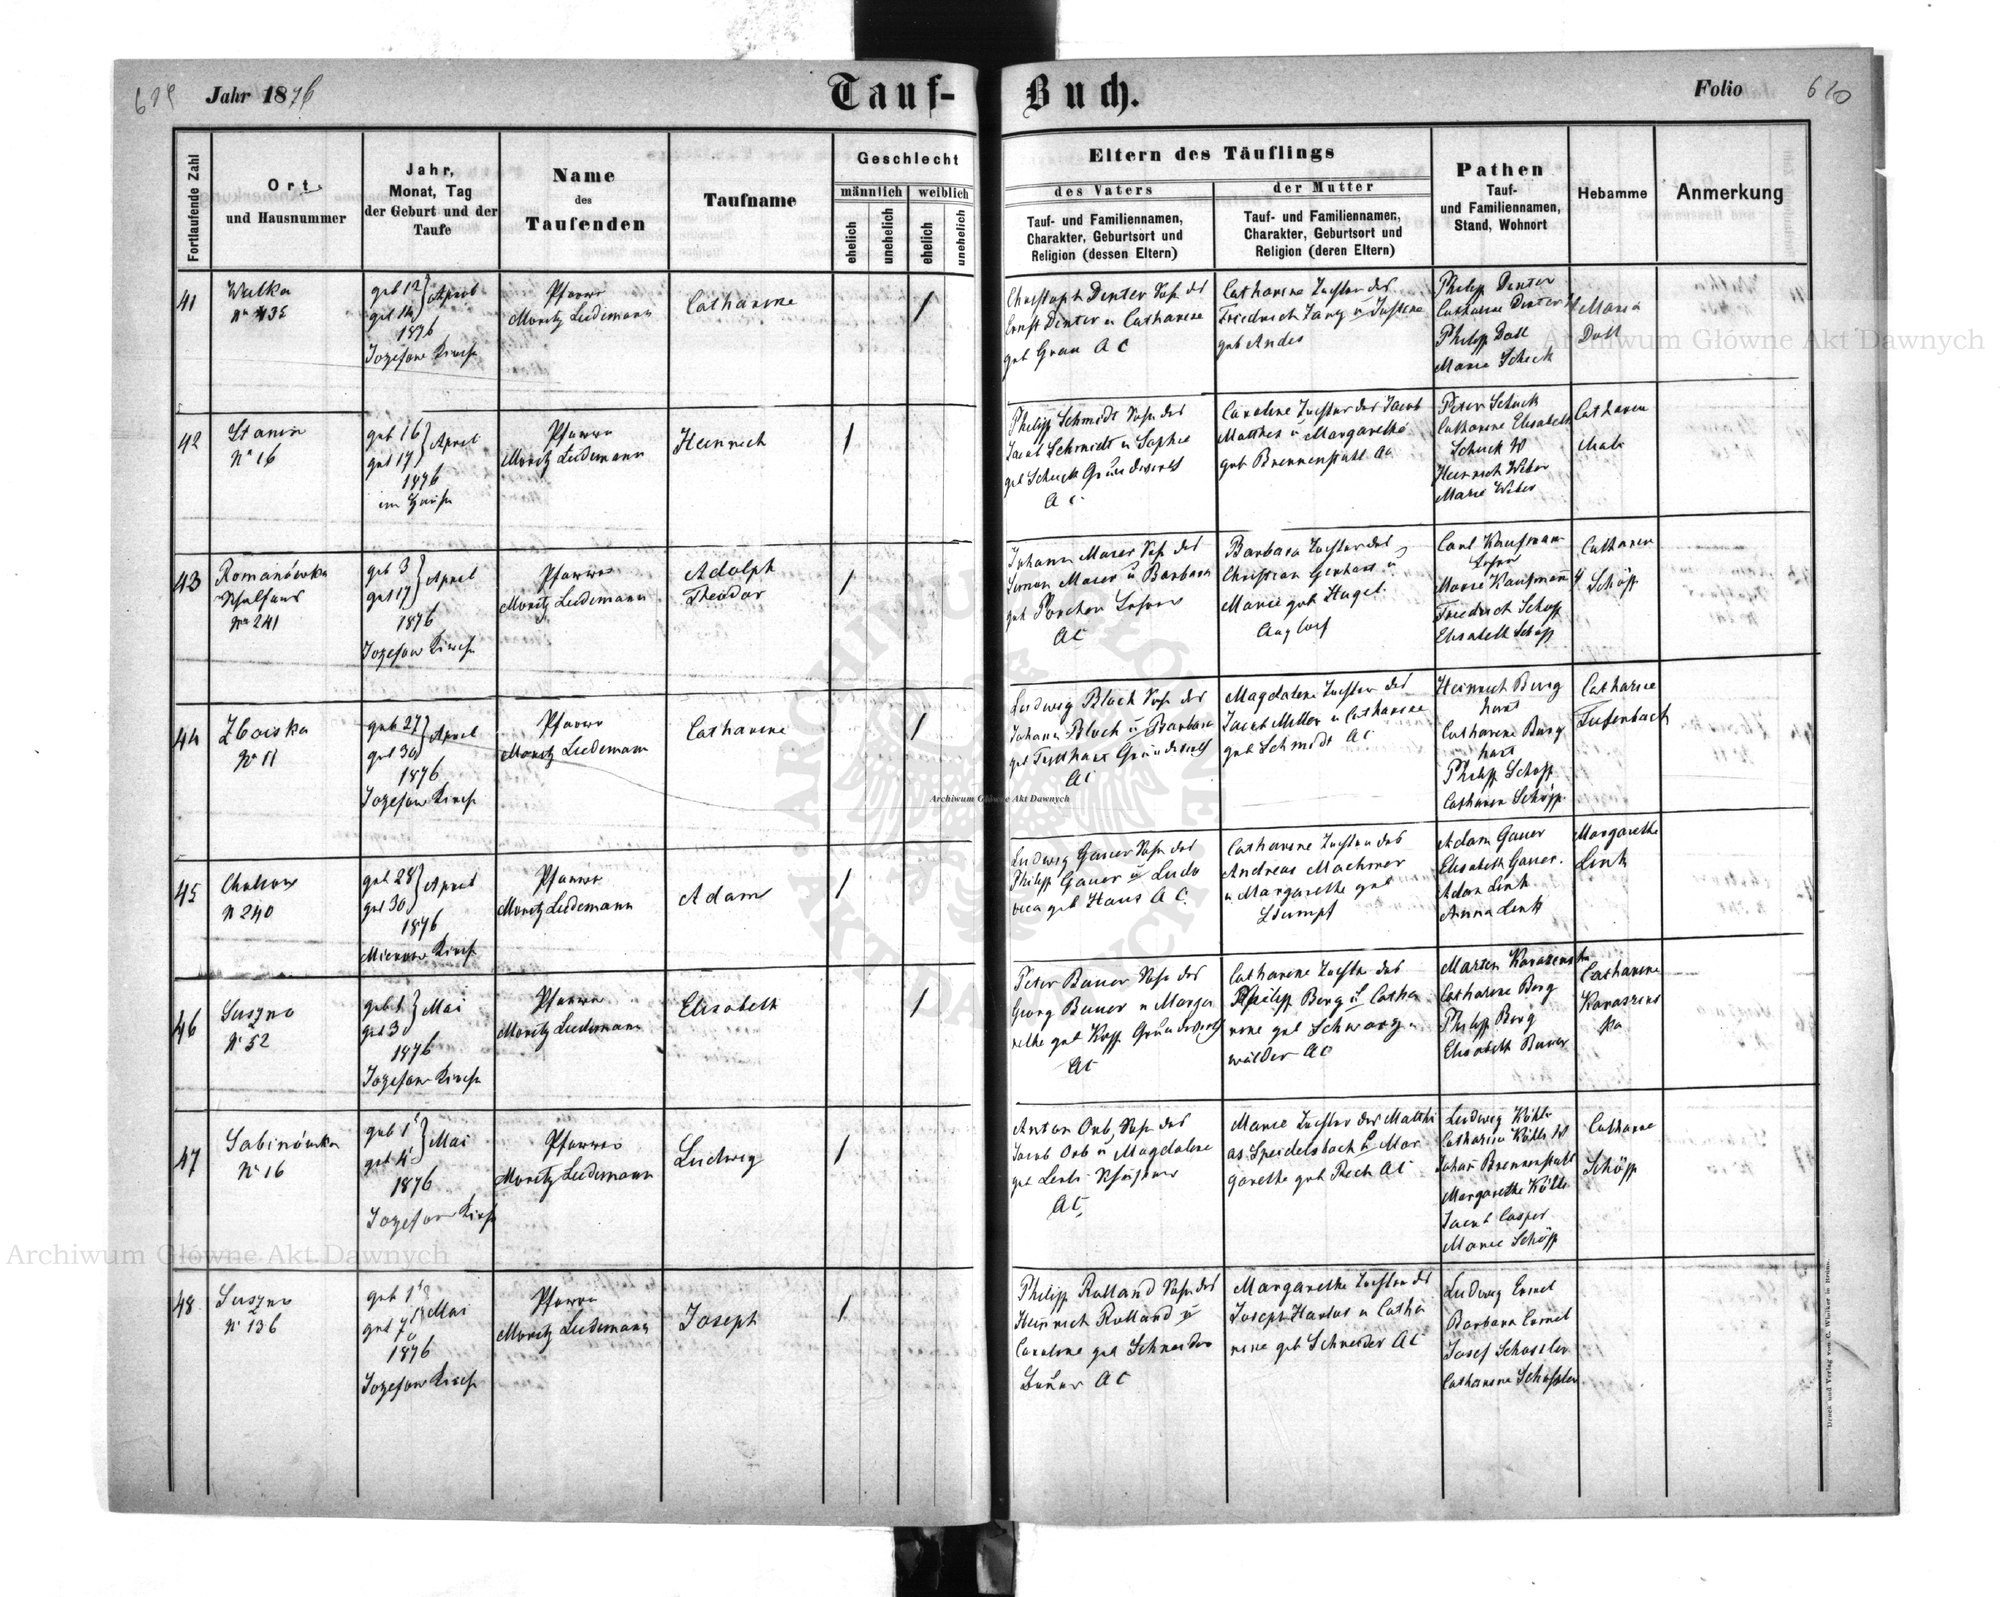 619
Jahr 1876
Tauf-
Buch.
Folio
620
Fortlaufende Zahl
Ort
und Hausnummer
Jahr,
Monat, Tag
der Geburt und der
Taufe
Name
des
Taufenden
Taufname
Geschlecht
männlich
weiblich
ehelich
unehelich
ehelich
unehelich
Eltern des Täuflings
des Vaters
Tauf- und Familiennamen,
Charakter, Geburtsort und
Religion (dessen Eltern)
der Mutter
Tauf- und Familiennamen,
Charakter, Geburtsort und
Religion (deren Eltern)
Pathen
Tauf-
und Familiennamen,
Stand, Wohnort
Hebamme
Anmerkung
41
Wulka
geb 12
get 14
April
1876
Jozefow Kirche
Pfarrer
Moritz Ludemann
Catharine
/
Christoph Denter Sohn des
Ernst Denter u Catharine
geb Grau AC
Catharine Tochter des
Friedrich Jany u Justine
geb Andes
Philipp Denter
Catharine Denter
Philipp Doll
Marie Scheck
Maria
Doll
42
Stanin
No 16
geb 16
get 17
April
1876
im Hause
Pfarrer
Moritz Ludemann
Heinrich
/
Philipp Schmidt Sohn des
Jacob Schmidt u Sophie
geb Scheck Grundwirth
AC
Caroline Tochter des Jacob
Matthes u Margarethe
geb Brennenstuhl AC
Peter Scheck
Catharine Elisabeth
Scheck
Heinrich Weber
Marie Weber
43
Romanówka
Schulhaus
No 241
geb 3
get 17
April
1876
Jozefow Kirche
Pfarrer
Moritz Ludemann
Adolph
Theodor
/
Johann Maser Sohn des
Simon Maser u Barbara
Lehrer
AC
Barbara Tochter des
Christian Gerhart u
Marie geb Hugel
Carl Kaufmann
Lehrer
Marie Kaufmann
Friedrich Schopp
Elisabeth Schöpp
Schöpp
44
Zboiska
No 11
geb 27
get 30
April
1876
Jozefow Kirche
Pfarrer
Moritz Ludemann
Catharine
/
Ludwig Bloch Sohn des
Johann Bloch u Barbara
Grundwirth
AC
Magdalene Tochter des
Jacob Miller u Catharine
geb Schmidt AC
Heinrich Burg
hart
Catharine Burg
hart
Philipp Schopp
Catharine Schöpp
Catharine
Tiefenbach
45
N 240
geb 28
get 30
April
1876
Mierow Kirche
Pfarrer
Moritz Ludemann
Adam
/
Ludwig Gauer Sohn des
Philipp Gauer u Ludo
vica geb Haus AC
Catharine Tochter des
Andreas Machmer
u Margarethe geb
Stumpf
Adam Gauer
Elisabeth Gauer
Adam Link
Anna Link
Margarethe
Link
46
Suszno
No 52
geb 1
get 30
Mai
1876
Jozefow Kirche
Pfarrer
Moritz Ludemann
Elisabeth
/
Peter Bauer Sohn des
Georg Bauer u Marga
rethe geb Kopp Grundwirth
AC
Catharine Tochter des
Philipp Berg u Catha
rine geb Schwarz
wälder AC
Catharine Berg
Philipp Berg
Elisabeth Bauer
Catharine
47
Sabinówka
No 16
geb 1
get 4
Mai
1876
Jozefow Kirche
Pfarrer
Moritz Ludemann
Ludwig
/
Anton Orb, Sohn des
Jacob Orb u Magdalene
AC
Marie Tochter des Matthi
as Speidelsbach u Mar
garethe geb Rech AC
Ludwig Köhle
Catharina Köhle
Johann Brennenstuhl
Margarethe Köhle
Jacob Casper
Marie Schöpp
Catharine
Schöpp
48
Suszno
No 136
geb 1
get 7
Mai
1876
Jozefow Kirche
Pfarrer
Moritz Ludemann
Joseph
/
Philipp Rolland Sohn des
Heinrich Rolland u
Caroline geb Schneider
AC
Margarethe Tochter des
Joseph Harlos u Catha
rine geb Schneider AC
Ludwig Ernel
Barbara Ernel
Josef Schossler
Catharine Schossler
Druck und Verlag von C. Winiker in Brünn.
Archiwum Główne Akt Dawnych
Archiwum Główne Akt Dawnych
Archiwum Główne Akt Dawnych
ARCHIWUM GŁÓWNE AKT DAWNYCH